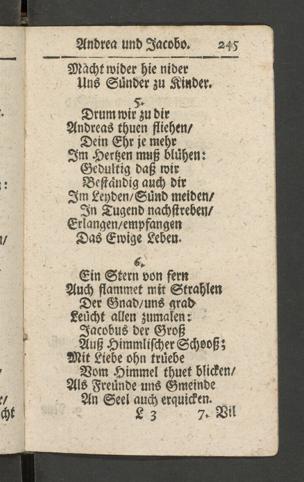 Andrea und Jacobo. 245
Mächt wider hie nider
Uns Sünder zu Kinder.
5.
Drum wir zu dir
Andreas thuen fliehen/
Dein Ehr je mehr
Im Hertzen muß blühen:
Gedultig daß wir
Beständig auch dir
Im Leyden/Sünd meiden/
In Tugend nachstreben/
Erlangen/empfangen
Das Ewige Leben.
6.
Ein Stern von fern
Auch flammet mit Strahlen
Der Gnad/uns grad
Leücht allen zumalen:
Jacobus der Groß
Auß Himmlischer Schooß;
Mit Liebe ohn trüebe
Vom Himmel thuet blicken/
Als Freünde uns Gmeinde
An Seel auch erquicken.
L 3 7. Vil